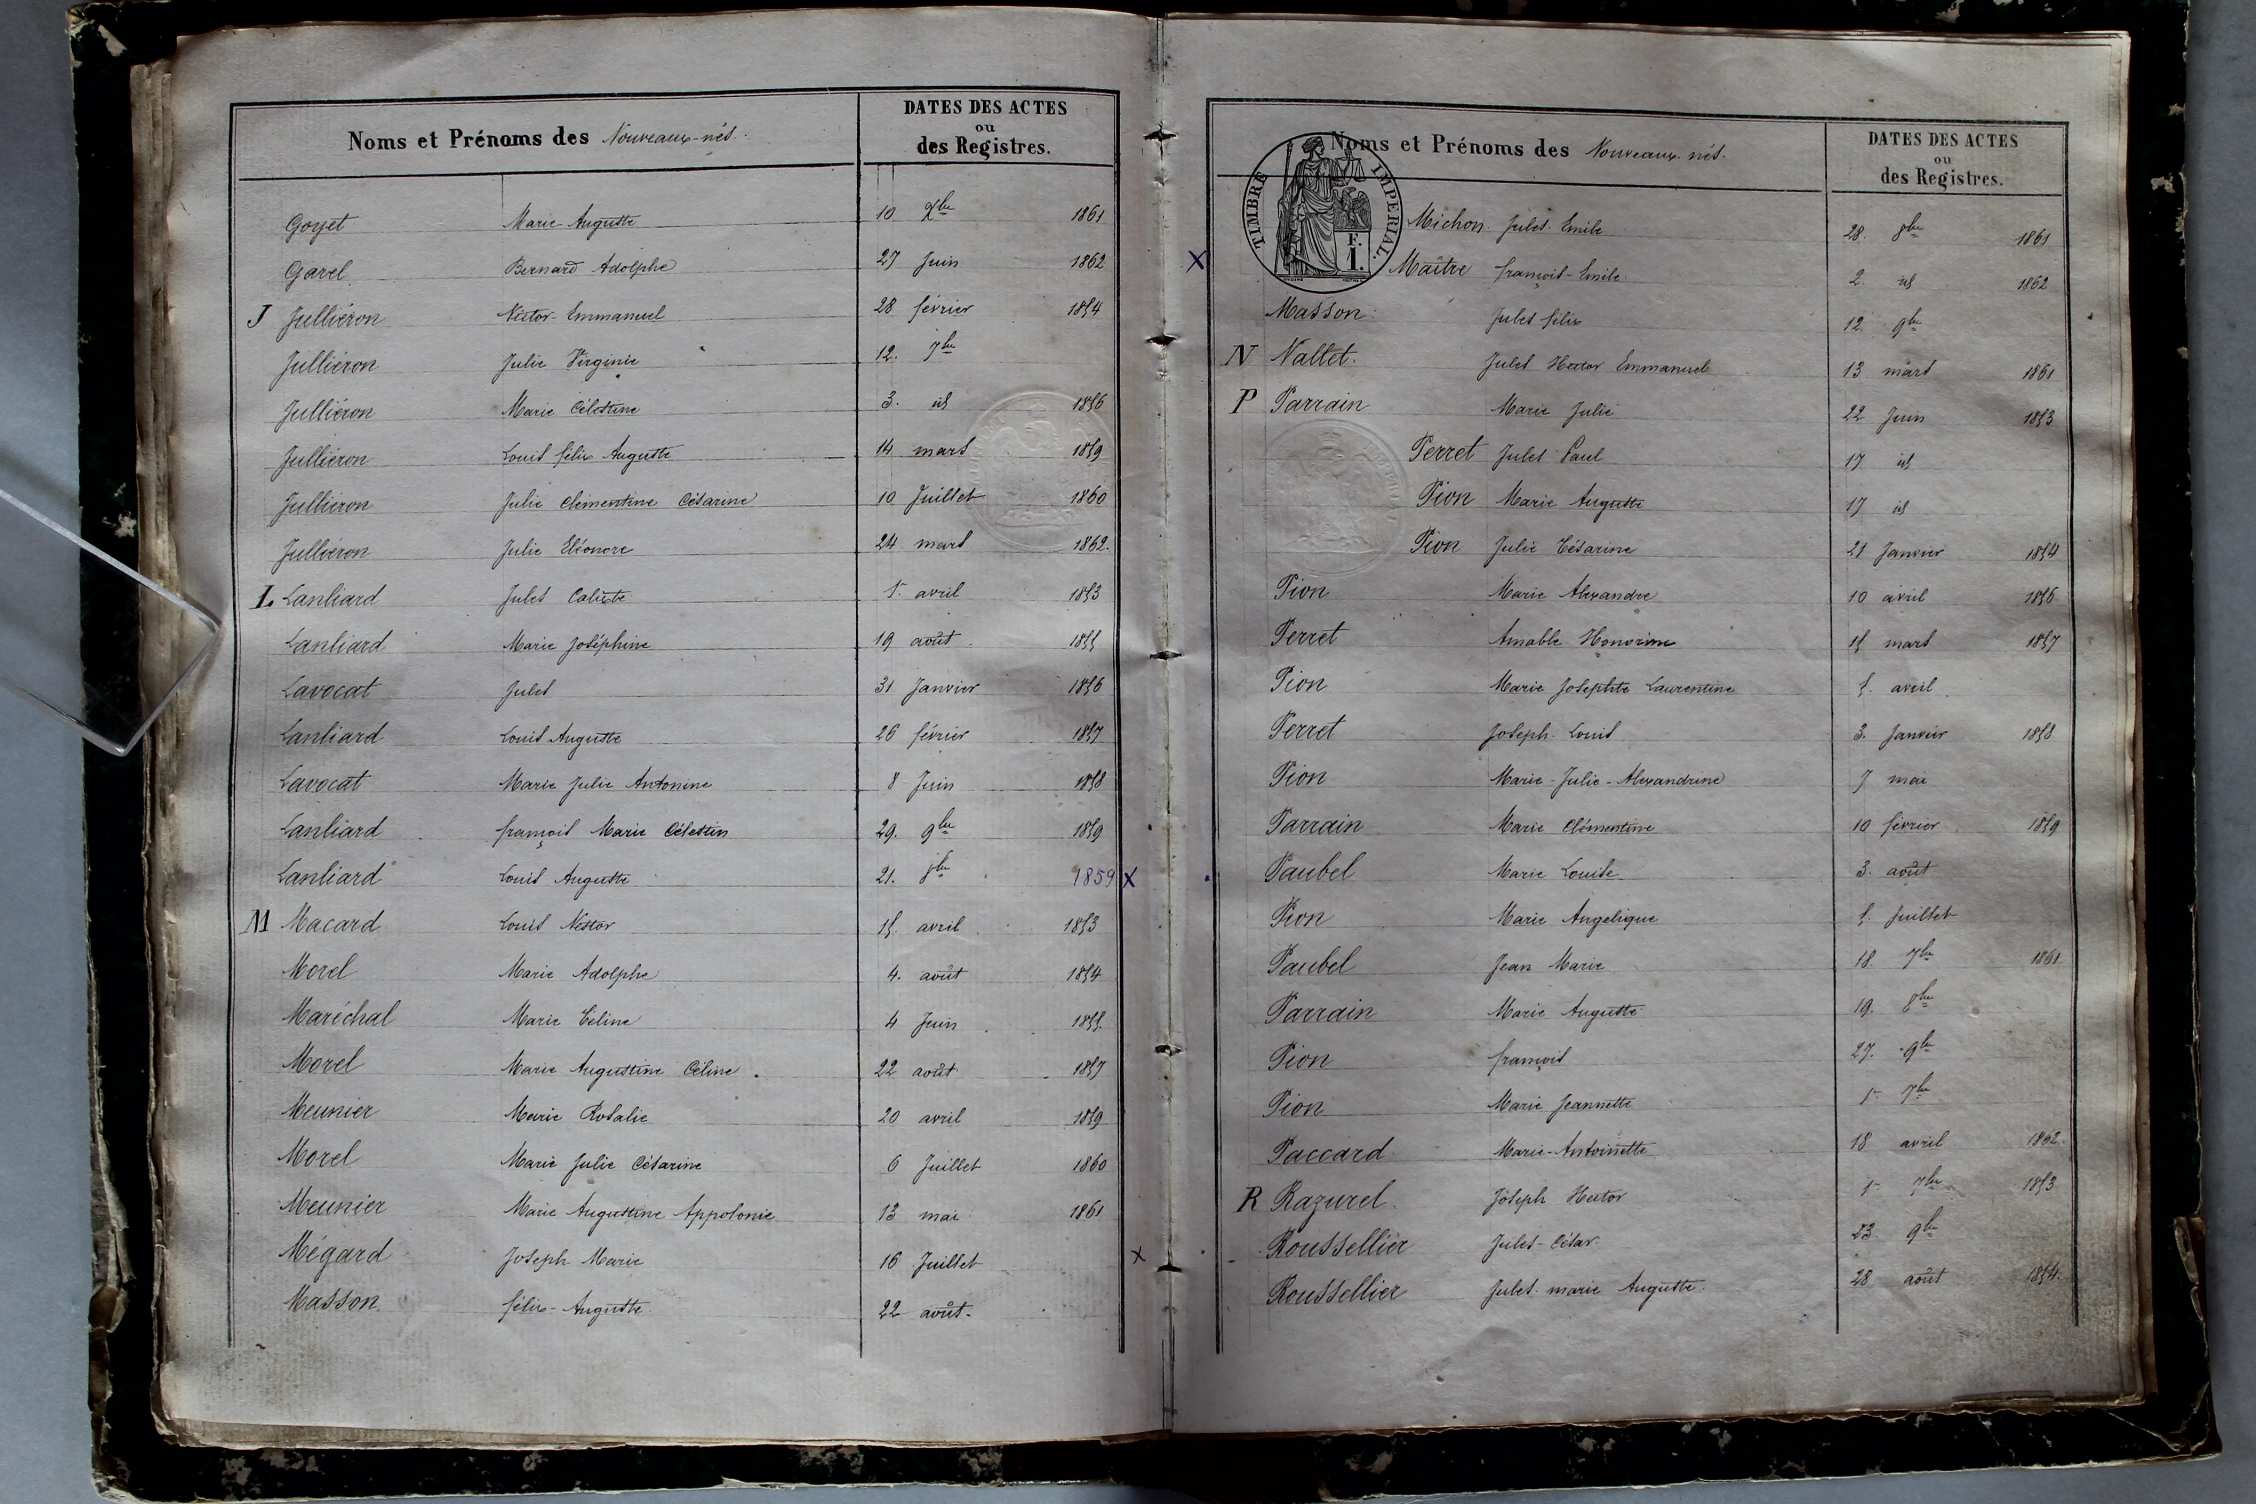 Noms et Prénoms des Nouveaux-nés.
DATES DES ACTES
ou
des Registres.
Goyet Marie Auguste 10 Xbre 1861
Garel Bernard Adolphe 27 Juin 1862
J Julliéron Nestor-Emmanuel 28 février 1854
Julliéron Julie Virginie 12. 7bre
Julliéron Marie Célestine 3. id 1856
Julliéron Louis félix Auguste 14 mars 1859
Julliéron Julie Clémentine Césarine 10 Juillet 1860
Julliéron Julie Eléonore 24 mars 1862.
L Lanliard Jules Calixte 1r avril 1853
Lanliard Marie Joséphine 19 août 1855
Lavocat Jules 31 Janvier 1856
Lanliard Louis Auguste 26 février 1857
Lavocat Marie Julie Antonine 8 Juin 1858
Lanliard françois Marie Célestin 29. 9bre 1859
Lanliard Louis Auguste 21. 1859 X
M Macard Louis Nestor 15. avril 1853
Morel Marie Adolphe 4. août 1854
Maréchal Marie Céline 4 Juin 1855.
Morel Marie Augustine Céline. 22 août 1857
Meunier Marie Rosalie 20 avril 1859
Morel Marie Julie Césarine 6 Juillet 1860
Meunier Marie Augustine Appolonie 13 mai 1861
Mégard Joseph Marie 16 Juillet X
Masson félix-Auguste. 22 août.
Noms et Prénoms des Nouveaux-nés.
DATES DES ACTES
ou
des Registres.
TIMBRE IMPERIAL.
F.
1.
Michon Jules Emile 28. 8bre 1861
X Maître françois-Emile 2. id 1862
Masson Jules félix 12. 9bre
N Nallet. Jules Hector Emmanuel 13 mars 1861
P Parrain Marie Julie 22 Juin 1853
Perret Jules Paul 17 id
Pion Marie Auguste 17 id
Pion Julie Césarine 21 Janvier 1854
Pion Marie Alexandre 10 avril 1856
Perret Amable Honorine 15 mars 1857
Pion Marie Josephte Laurentine 5. avril
Perret Joseph Louis 3. Janvier 1858
Pion Marie-Julie-Alexandrine 7 mai
Parrain Marie Clémentine 10 février 1859
Paubel Marie Louise 3. août
Pion Marie Angelique 5. Juillet
Paubel Jean Marie 18 7bre 1861
Parrain Marie Auguste 19. 8bre
Pion françois 27. 9bre
Pion Marie Jeannette 1r 7bre
Paccard Marie-Antoinette 18 avril 1862.
R Razurel Joseph Hector 1r 7bre 1853
Roussellier Jules-César 23. 9bre
Roussellier Jules marie Auguste. 28 août 1854.